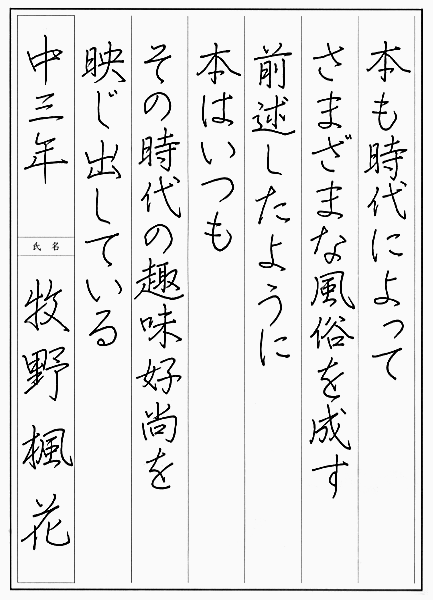 本も時代によって
さまざまな風俗を成す
前述したように
本はいつも
その時代の趣味好尚を
映じ出している
中三年
氏名
牧野楓花